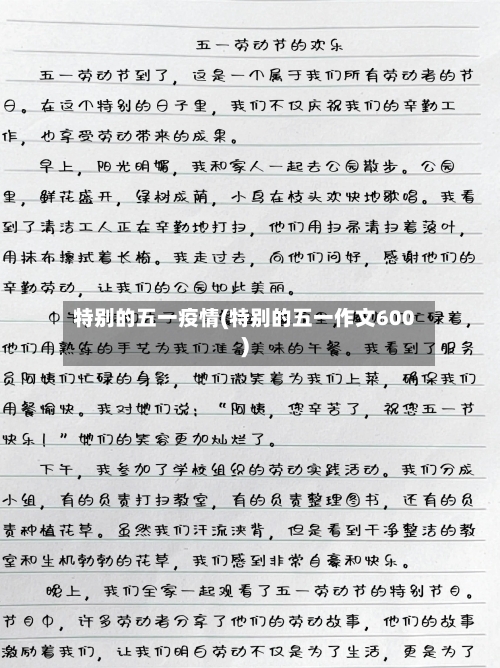 五一劳动节的欢乐
五一劳动节到了，这是一个属于我们所有劳动者的节
日。在这个特别的日子里，我们不仅庆祝我们的辛勤工
作，也享受劳动带来的成果。
早上，阳光明媚，我和家人一起去公园散步。公园
里，鲜花盛开，绿树成荫，小鸟在枝头欢快地歌唱。我看
到了清洁工人正在辛勤地打扫，他们用扫帚清扫着落叶，
用抹布擦拭着长椅。我走过去，向他们问好，感谢他们的
辛勤劳动，让我们的公园如此美丽。
中午
碌着，
特别的五一疫情(特别的五一作文600
)
他们用熟练的手艺为我们准备美味的午餐。我看到了服务
员阿姨们忙碌的身影，她们微笑着为我们上菜，确保我们
用餐愉快。我对她们说：“阿姨，您辛苦了，祝您五一节
快乐！”她们的笑容更加灿烂了。
下午，我参加了学校组织的劳动实践活动。我们分成
小组，有的负责打扫教室，有的负责整理图书，还有的负
责种植花草。虽然我们汗流浃背，但是看到干净整洁的教
室和生机勃勃的花草，我们感到非常自豪和快乐。
晚上，我们全家一起观看了五一劳动节的特别节目。
节目中，许多劳动者分享了他们的劳动故事，他们的故事
激励着我们，让我们明白劳动不仅是为了生活，更是为了